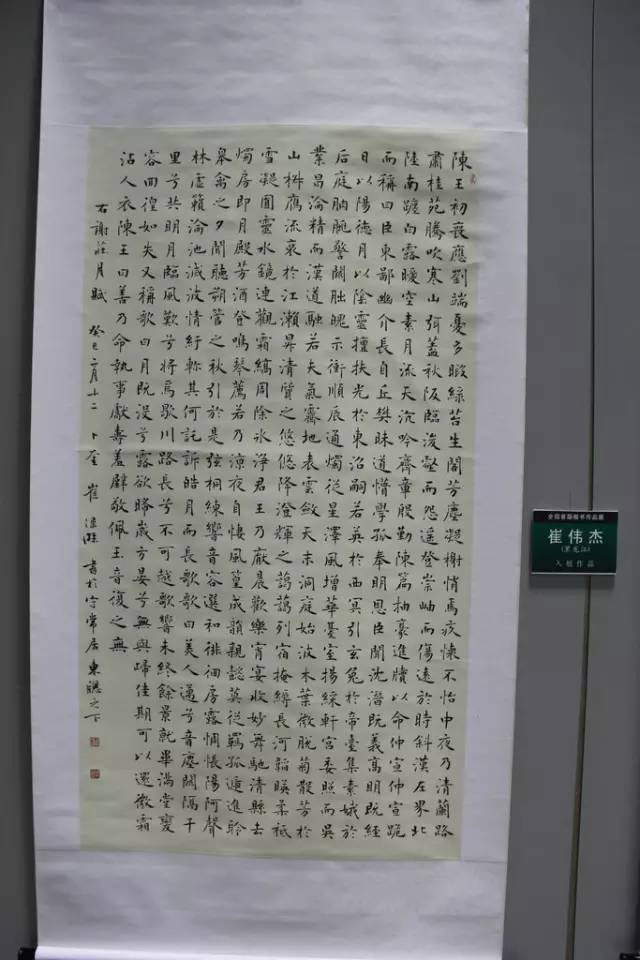 陳王初喪應劉端憂多暇綠苔生閣芳塵凝榭悄焉疚懷不怡中夜乃清蘭路
肅桂苑騰吹寒山弭蓋秋阪臨浚壑而怨遥登崇岫而傷遠於時斜漢左界北
陸南躔白露曖空素月流天沉吟齊章殷勤陳篇抽豪進牘以命仲宣仲宣跪
而稱曰臣東鄙幽介長自丘樊昧道懵學孤奉明恩臣聞沈潛既義高明既經
日以陽德月以陰靈擅扶光於東沼嗣若英於西冥引玄兔於帝臺集素娥於
后庭朒朓警闕朏魄示衝順辰通燭從星澤風增華臺室揚綵軒宮委照而吳
業昌淪精而漢道融若夫氣霽地表雲斂天末洞庭始波木葉微脫菊散芳於
山椒鴈流哀於江瀨昇清質之悠悠降澄輝之藹藹列宿掩縟長河韜暎柔祇
雪凝圓靈水鏡連觀霜縞周除冰淨君王乃厭晨歡樂宵宴收妙舞馳清縣去
燭房即月殿芳酒登鳴琴薦若乃涼夜自悽風篁成韻親懿莫從羈孤遞進聆
皋禽之夕聞聽朔管之秋引於是弦桐練響音容選和徘徊房露惆悵陽阿聲
林虛籟淪池滅波情紆軫其何託訴皓月而長歌歌曰美人邁兮音塵闕隔千
里兮共明月臨風歎兮將焉歇川路長兮不可越歌響未終餘景就畢滿堂變
容回徨如失又稱歌曰月既沒兮露欲晞歲方晏兮無與歸佳期可以還微霜
沾人衣陳王曰善乃命執事獻壽羞璧敬佩玉音復之無
右謝莊月賦 癸巳二月十二 卜奎 崔 書於守常居東牕之下
全国首届楷书作品展
崔伟杰
(黑龙江)
入展作品